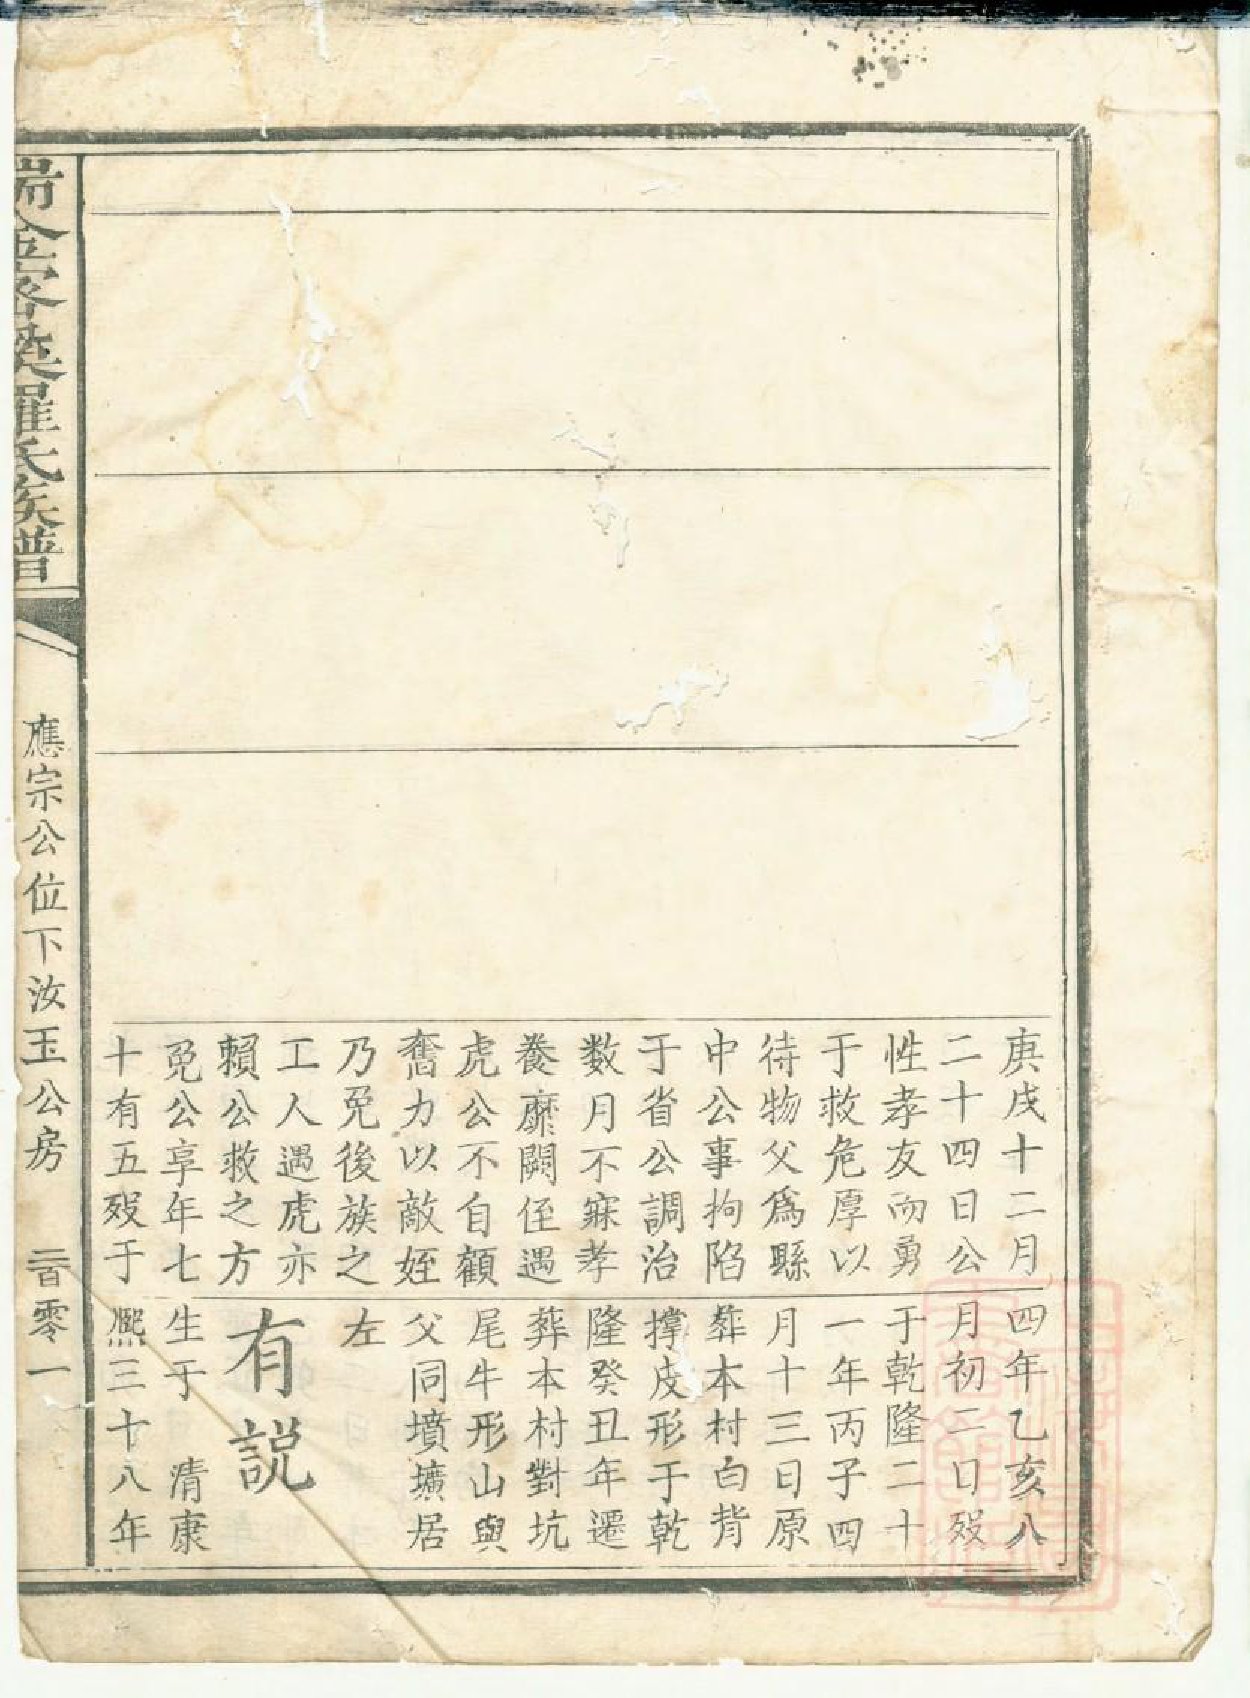 庚戌十二月
二十四日公
性孝友而勇
于救危厚以
待物父爲縣
中公事拘陷
于省公調治
数月不寐孝
養靡闕侄遇
虎公不自顧
奮力以敵姪
乃免後族之
工人遇虎亦
賴公救之方
免公享年七
十有五殁于
四年乙亥八
月初二日殁
于乾隆二十
一年丙子四
月十三日原
葬本村白背
撑皮形于乾
隆癸丑年遷
葬本村對坑
尾牛形山與
父同墳壙居
左
有説
生于 清康
熙三十八年
瑞金密溪羅氏族譜
應宗公位下汝玉公房 二百零一